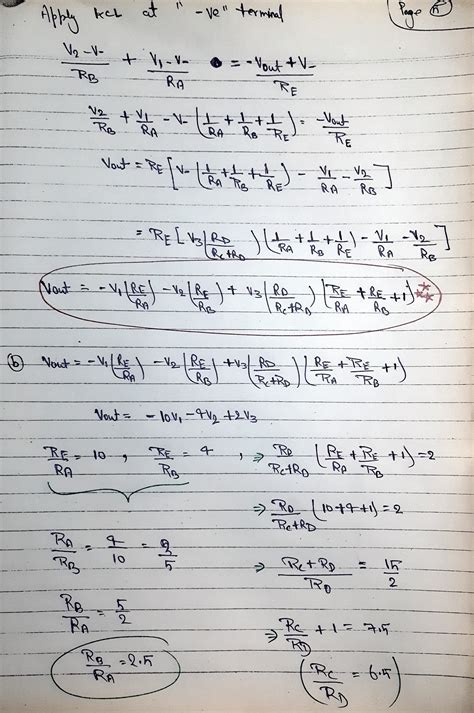 Apply KCL at "-ve" terminal
Page
V2 - V- / RB + V1 - V- / RA = -Vout + V- / RE
V2/RB + V1/RA - V- (1/RA + 1/RB + 1/RE) = -Vout/RE
Vout = RE [V- (1/RA + 1/RB + 1/RE) - V1/RA - V2/RB]
= RE [V3 (RD/RC+RD) (1/RA + 1/RB + 1/RE) - V1/RA - V2/RB]
Vout = -V1 (RE/RA) - V2 (RE/RB) + V3 (RD/RC+RD) (RE/RA + RE/RB + 1)
(b) Vout = -V1 (RE/RA) - V2 (RE/RB) + V3 (RD/RC+RD) (RE/RA + RE/RB + 1)
Vout = -10V1 - 4V2 + 2V3
RE/RA = 10, RE/RB = 4, ⇒ RD/RC+RD (RE/RA + RE/RB + 1) = 2
⇒ RD/RC+RD (10+4+1) = 2
RA/RB = 4/10 = 2/5
⇒ RC+RD/RD = 15/2
RB/RA = 5/2
⇒ RC/RD + 1 = 7.5
RB/RA = 2.5
RC/RD = 6.5